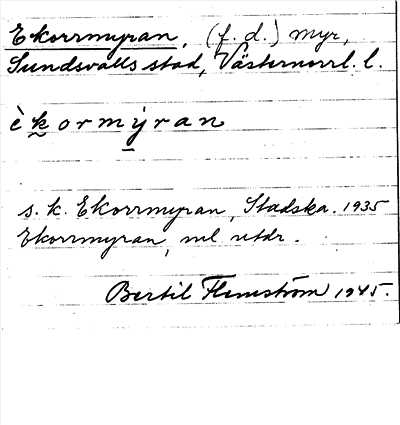 Ekorrmyran, (f. d.) myr,
Sundsvalls stad, Västernorrl. l.
èk̰ormý̱ran
s. k. Ekorrmyran, Stadska. 1935
Ekorrmyran, ml utdr.
Bertil Flemström 1945.